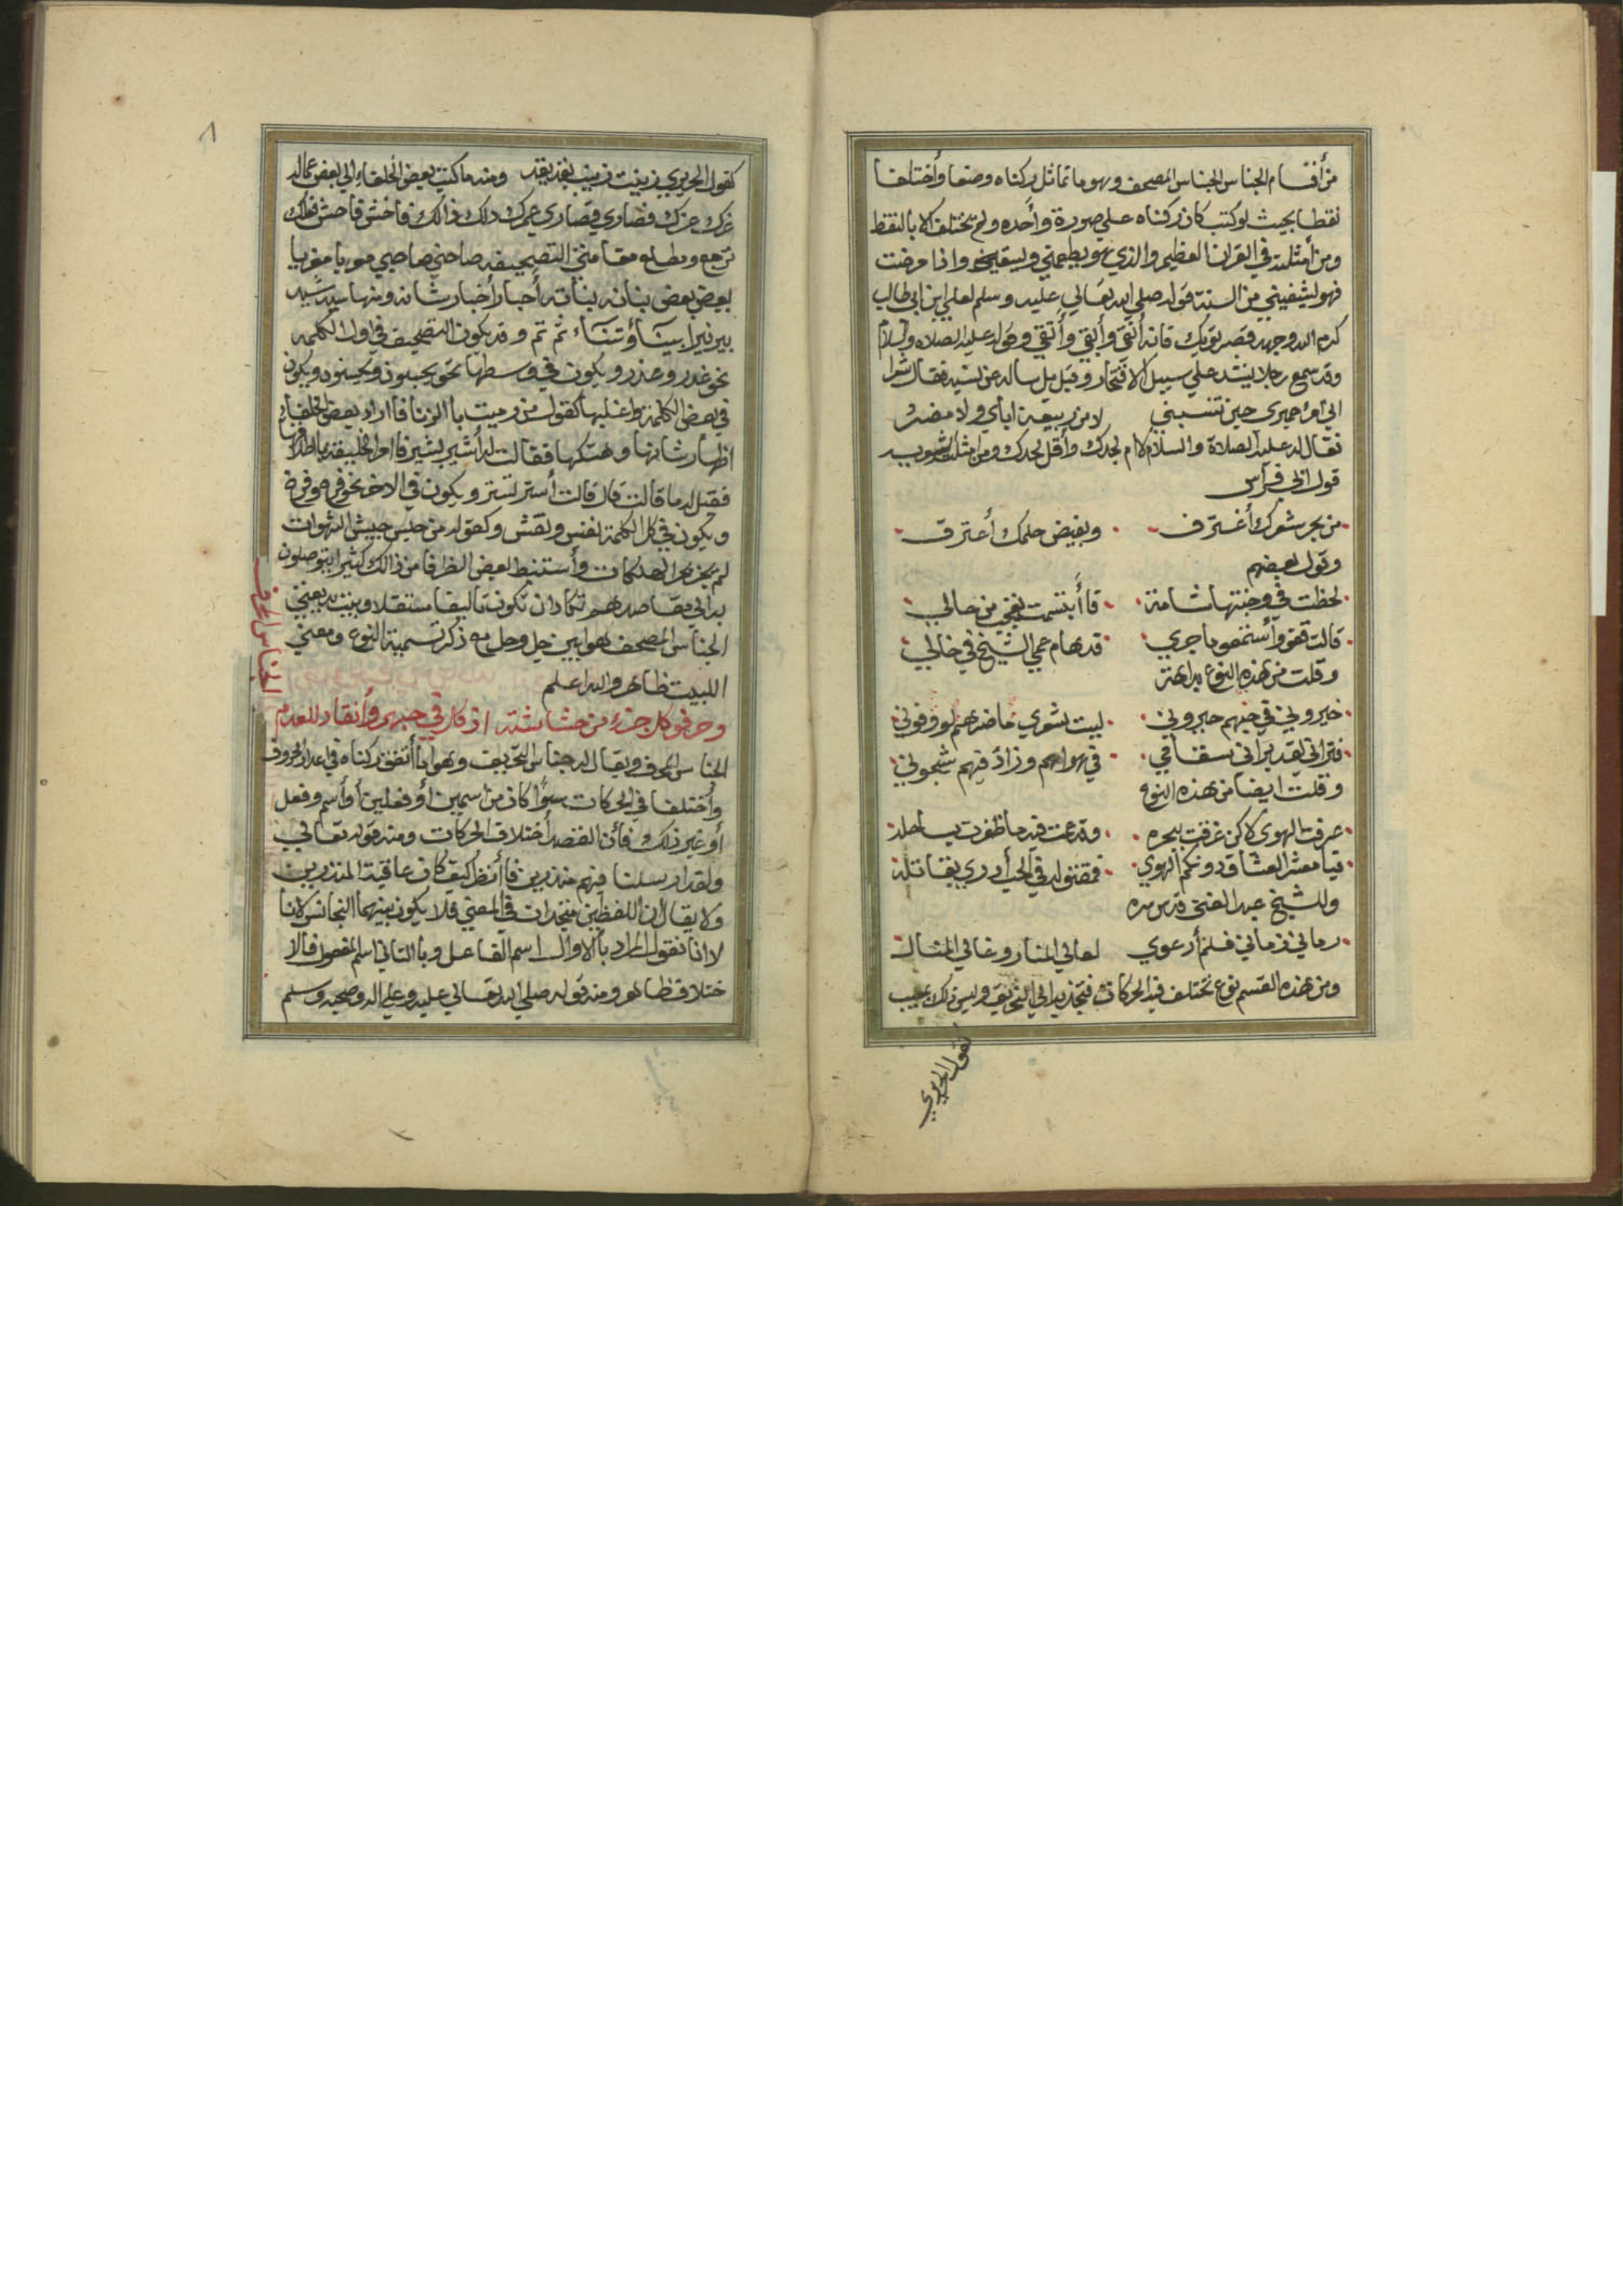 من أقسام الجناس الجناس المصحف وهو ما تماثل ركناه وضعا وأختلفا
نقطا بحيث لو كتب كان ركناه علي صورة وأحده ولم تختلف الا بالنقط
ومن أمثلته في القران العظيم والذي هو يطعمني ويسقين واذا مرضت
فهو يشفيني من السنة قوله صلي الله تعالي عليه وسلم لعلي ابن ابي طالب
كرم الله وجهه قصر ثوبك فانه أنقي وأبقي وأتقي وقوله عليه الصلاه والسلام
وقد سمع رجلا ينشد علي سبيل الافتخار وقيل بل ساله عن نسبه فقال شعرا
اني امرؤ حميري حين تنسبني لا من ربيعة اباي ولا مضر
فقال له عليه الصلاة والسلام الام لجدك وأقل لحدك ومن امثلته
قول ابي فراس
من بحر شعرك أغترف وبفيض حلمك أعترف
وقول بعضهم
لحظت في وجنتها شامة فأأبتسمت تعجب من حالي
قالت قفو وأستمعو ما جري قد هام عمي الشيخ في خالي
وقلت من هذه النوع بداهة
خيروني في حبهم حيروني ليت شعري ما ضرهم لو
فتراني لقد براني سقامي في هواهم وزاد فيهم شجوني
وقلت ايضا من هذه النوع
عرفت الهوى لاكن غرقت ببحره وقد عمت فيه ما ظفرت بساحله
فيا معشر العشاق دونكم الهوي فمقتوله في الحب أدري بقاتله
وللشيخ عبد الغني قدس سره
رماني زماني فلم أرعوي لعالي المنار وغالي المنال
ومن هذه القسم نوع تختلف فيه الحركات وليس ذلك بعيب
كقول الحريري
٨
كقول الحريري زينت زينب بقد يقد ومنه ما كتب بعض الخلفاء الي بعض عماله
غرك عزك فصاري قصاري عمرك ذلك ذالك فاخش فاحش فعلك
بعض بعض بنانه بنانته أخبار أخبار شانه ومنها
ثم تم وقد يكون التصحيف في اول الكلمه
نحو غدر وعذر ويكون في وسطها نحو يحبسون ويحسنون ويكون
في بعض الكلمة واغلبها كقول من رميت باالزنا فاا اراد بعض الخلفاء
اظهار شانها وهتكها فقالت له
فقيل له ما قالت قال قالت أستر تستر ويكون في الاخر نحو
ويكون في كل الكلمة وكقوله من حبس جيش الشهوات
وأستنبط بعض الظرفا من ذالك كثيرا يتوصلون
به الي مقاصدهم تكاد ان تكون تاليفا مستقلا وبيت بديعيتي
الجناس المصحف هو ما بين مع ذكر تسمية النوع ومعني
اللبيت ظاهر والله اعلم
وحرفو كل جزء من حشاشته اذ كان في حبهم وأنقاد للعدم
الجناس المحرف
الجناس المحرف ويقال له جناس التحريف وهو ما أتفق ركناه في اعداد الحروف
وأختلفا في الحركات سوأ كان من اسمين أو فعلين أو أسم وفعل
أو غير ذلك فاأن القصد أختلاف الحركات ومنه قوله تعالي
ولقد ارسلنا فيهم منذرين فاأنظر كيف كان عاقبة المنذرين
ولا يقال ان اللفظين متحدان في المعني فلا يكون بينهما التجانس لانا
لا انا نقول المراد باالاول اسم الفاعل وبا الثاني اسم المفعول فالا
ختلاف ظاهر ومنه قوله صلي الله تعالي عليه وعلي اله وصحبه وسلم